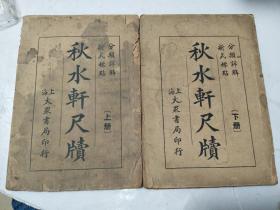 分類詳解
新式標點
秋水軒尺牘
(上册)
上海大眾書局印行
分類詳解
新式標點
秋水軒尺牘
(下册)
上海大眾書局印行